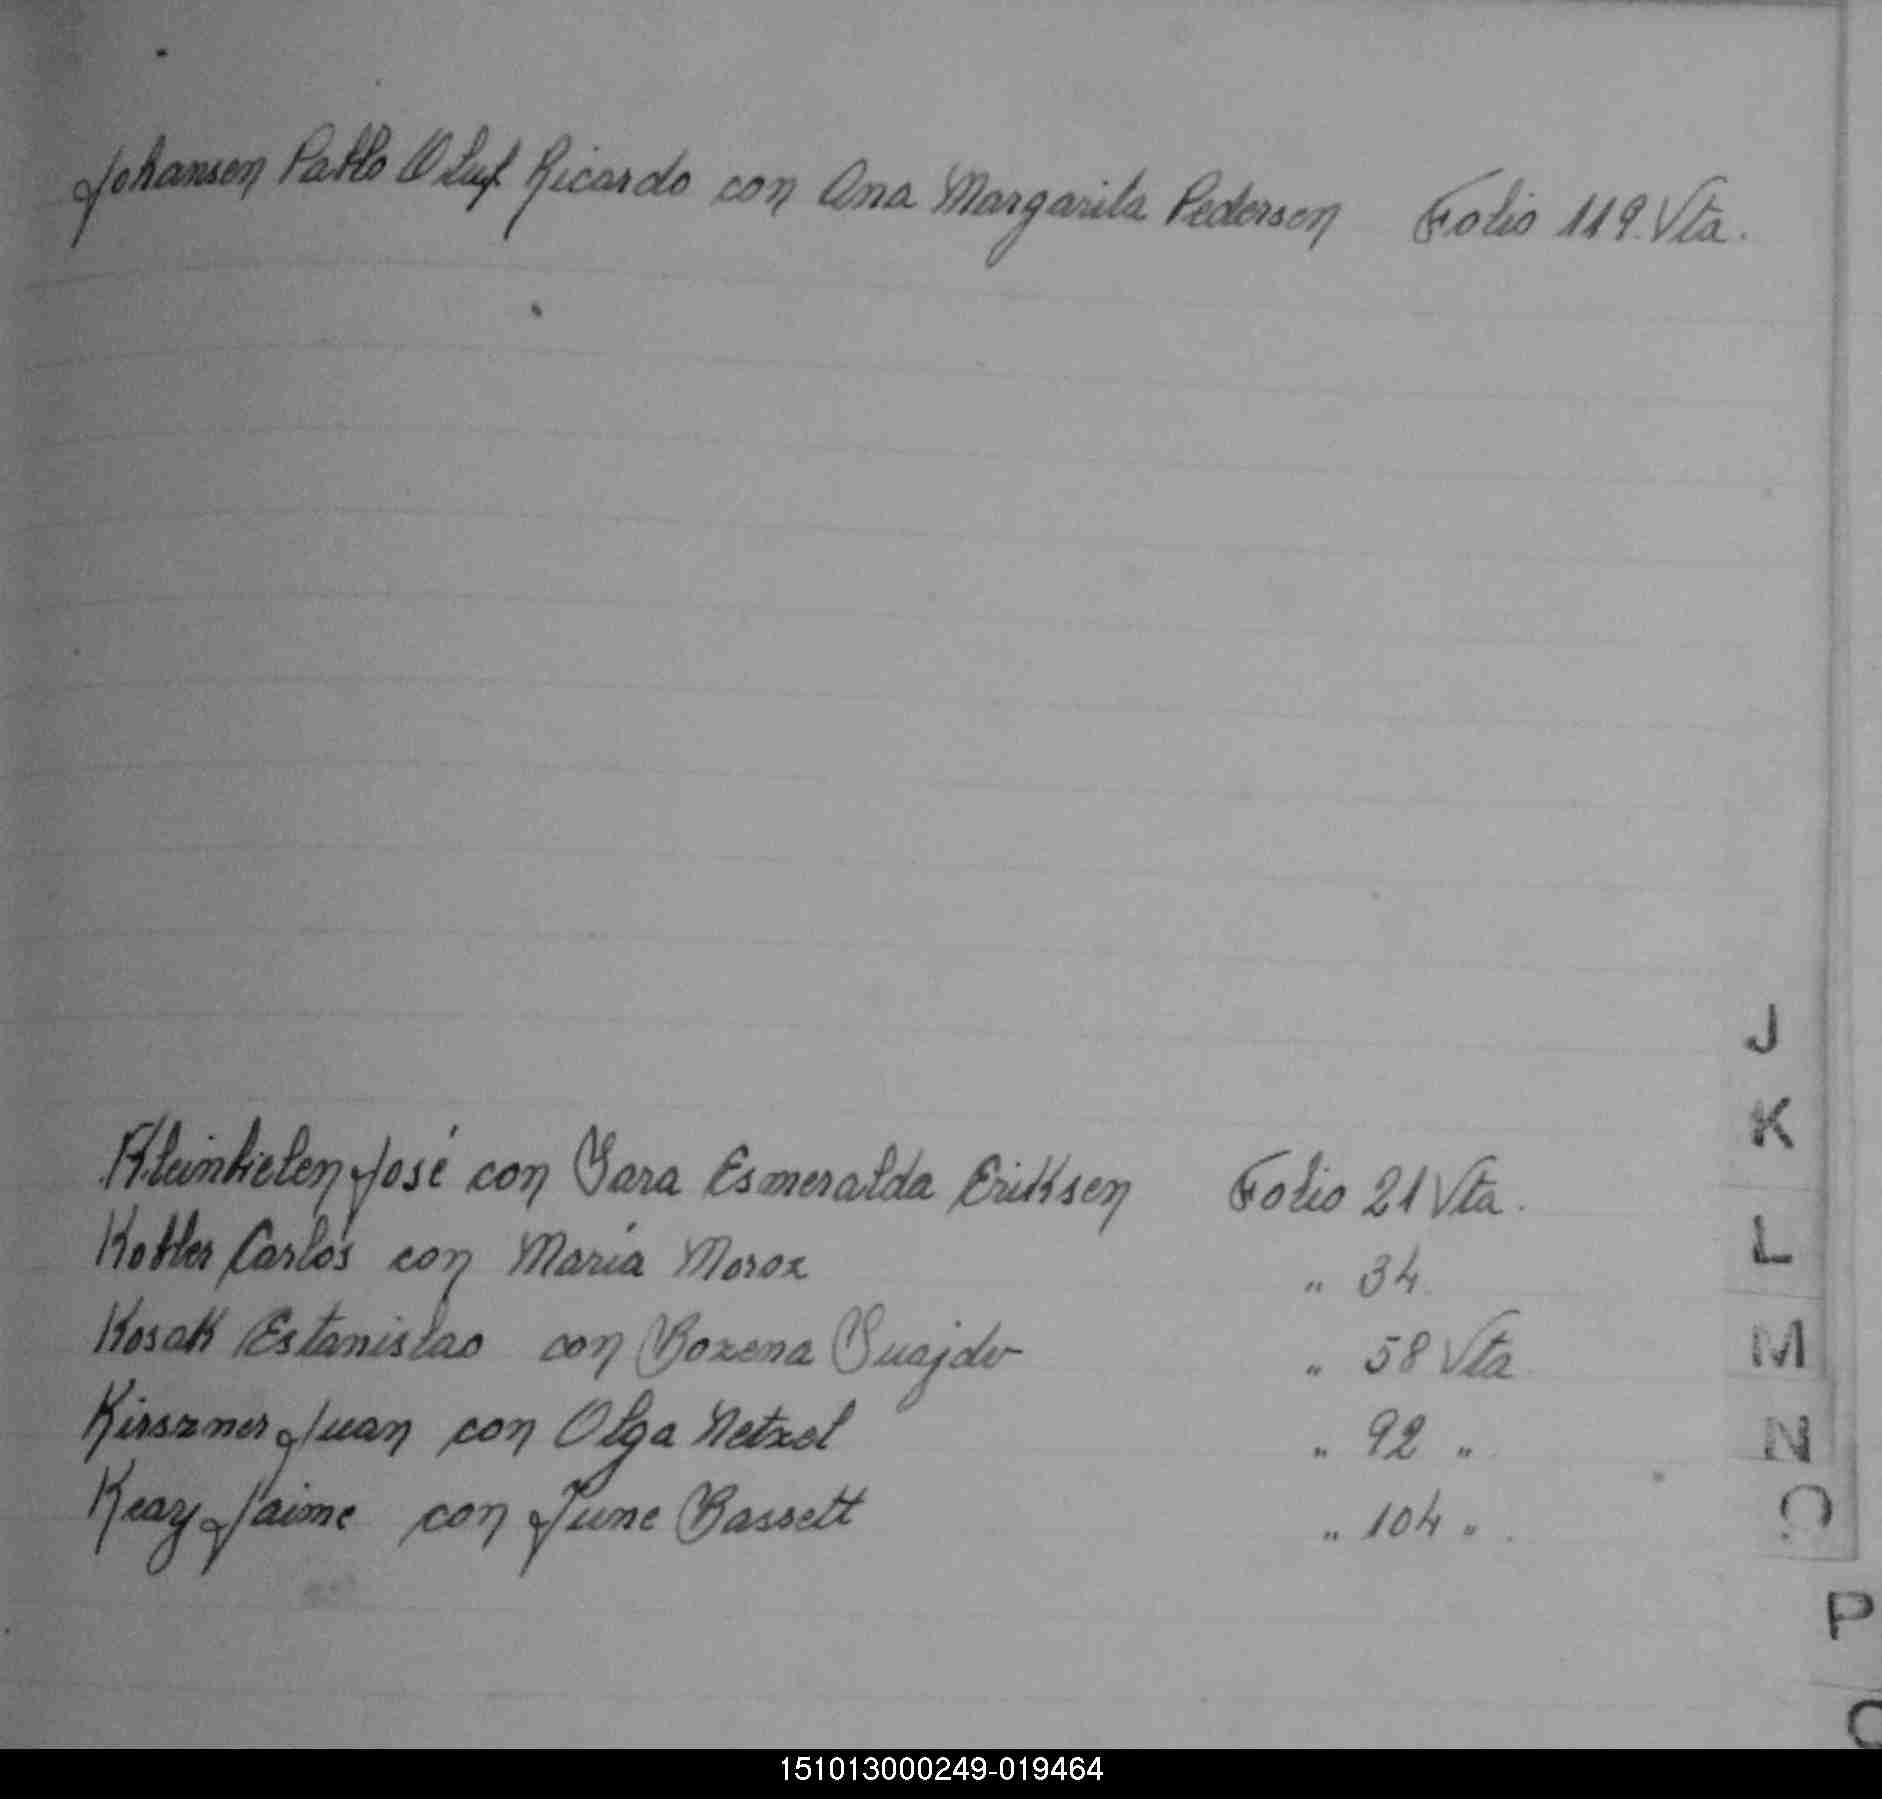 Johansen Pablo Oluf Ricardo con Ana Margarita Pedersen Folio 119 Vta.
J
K
Kleinbielen José con Sara Esmeralda Eriksen Folio 21 Vta.
Kobler Carlos con María Moroz " 34
L
Kosak Estanislao con Bozena Suajdo " 58 Vta
M
Kirszner Juan con Olga Netzel " 92 "
N
Keay Jaime con June Bassett " 104 "
O
P
151013000249-019464